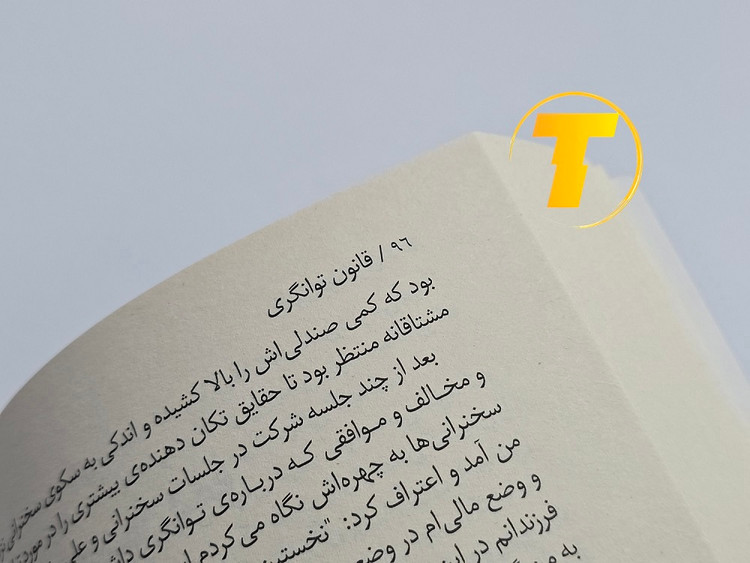 T
۹۶ / قانون توانگری
بود که کمی صندلی‌اش را بالا کشیده و اندکی به سکوی سخنرانی
مشتاقانه منتظر بود تا حقایق تکان دهنده‌ی بیشتری را در مورد
بعد از چند جلسه شرکت در جلسات سخنرانی و
و مخالف و موافقی که درباره‌ی توانگری
سخنرانی‌ها به چهره‌اش نگاه می کردم
من آمد و اعتراف کرد: "نخستین
و وضع مالی‌ام در وضع
فرزندانم در
به